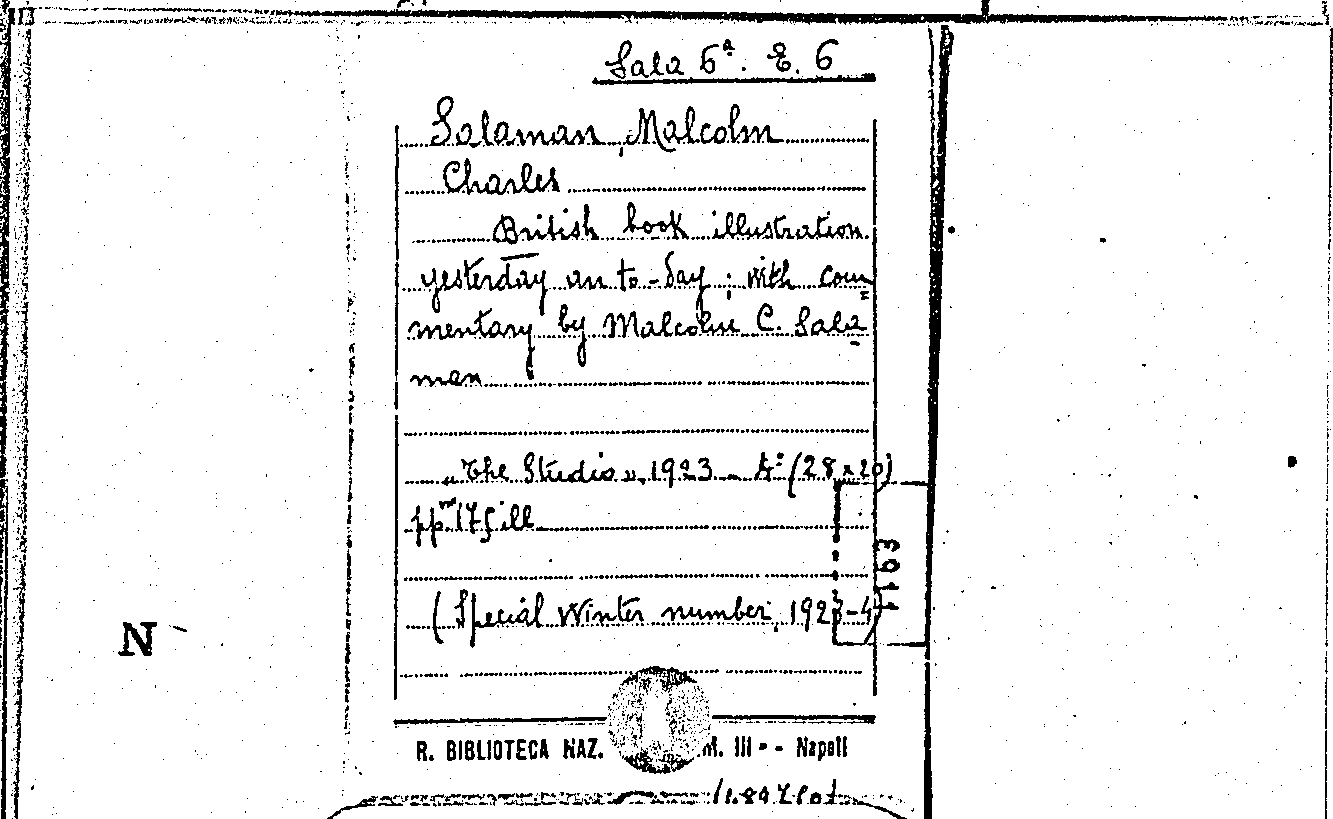 Sala 6ª. E. 6
Salaman, Malcolm
Charles
British book illustration
yesterday an to-day ; with com=
mentary by Malcolm C. Sala=
man
"The Studio", 1923 - 4° (28x20)
pp 175 ill
(Special Winter number, 1923-4)
1103
N
R. BIBLIOTECA NAZ. M. III - - Napoli